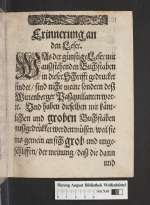 Erinnerung an
den Leser.
WAs der günstige Leser mit
außstehenden Buchstaben
in dieser Schrifft gedrucket
findet / sind nicht meine sondern deß
Wittenberger Pasquillanten wor-
te. Und haben dieselben mit känt-
lichen und groben Buchstaben
außgedrücket werden müssen / weil sie
ins gemein an sich grob und unge-
schliffen / der meinung / daß die dann
und
Herzog August Bibliothek Wolfenbüttel